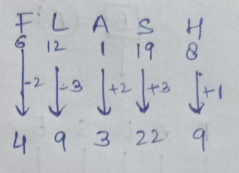 F L A S H
6 12 1 19 8
-2 -3 +2 +3 +1
4 9 3 22 9